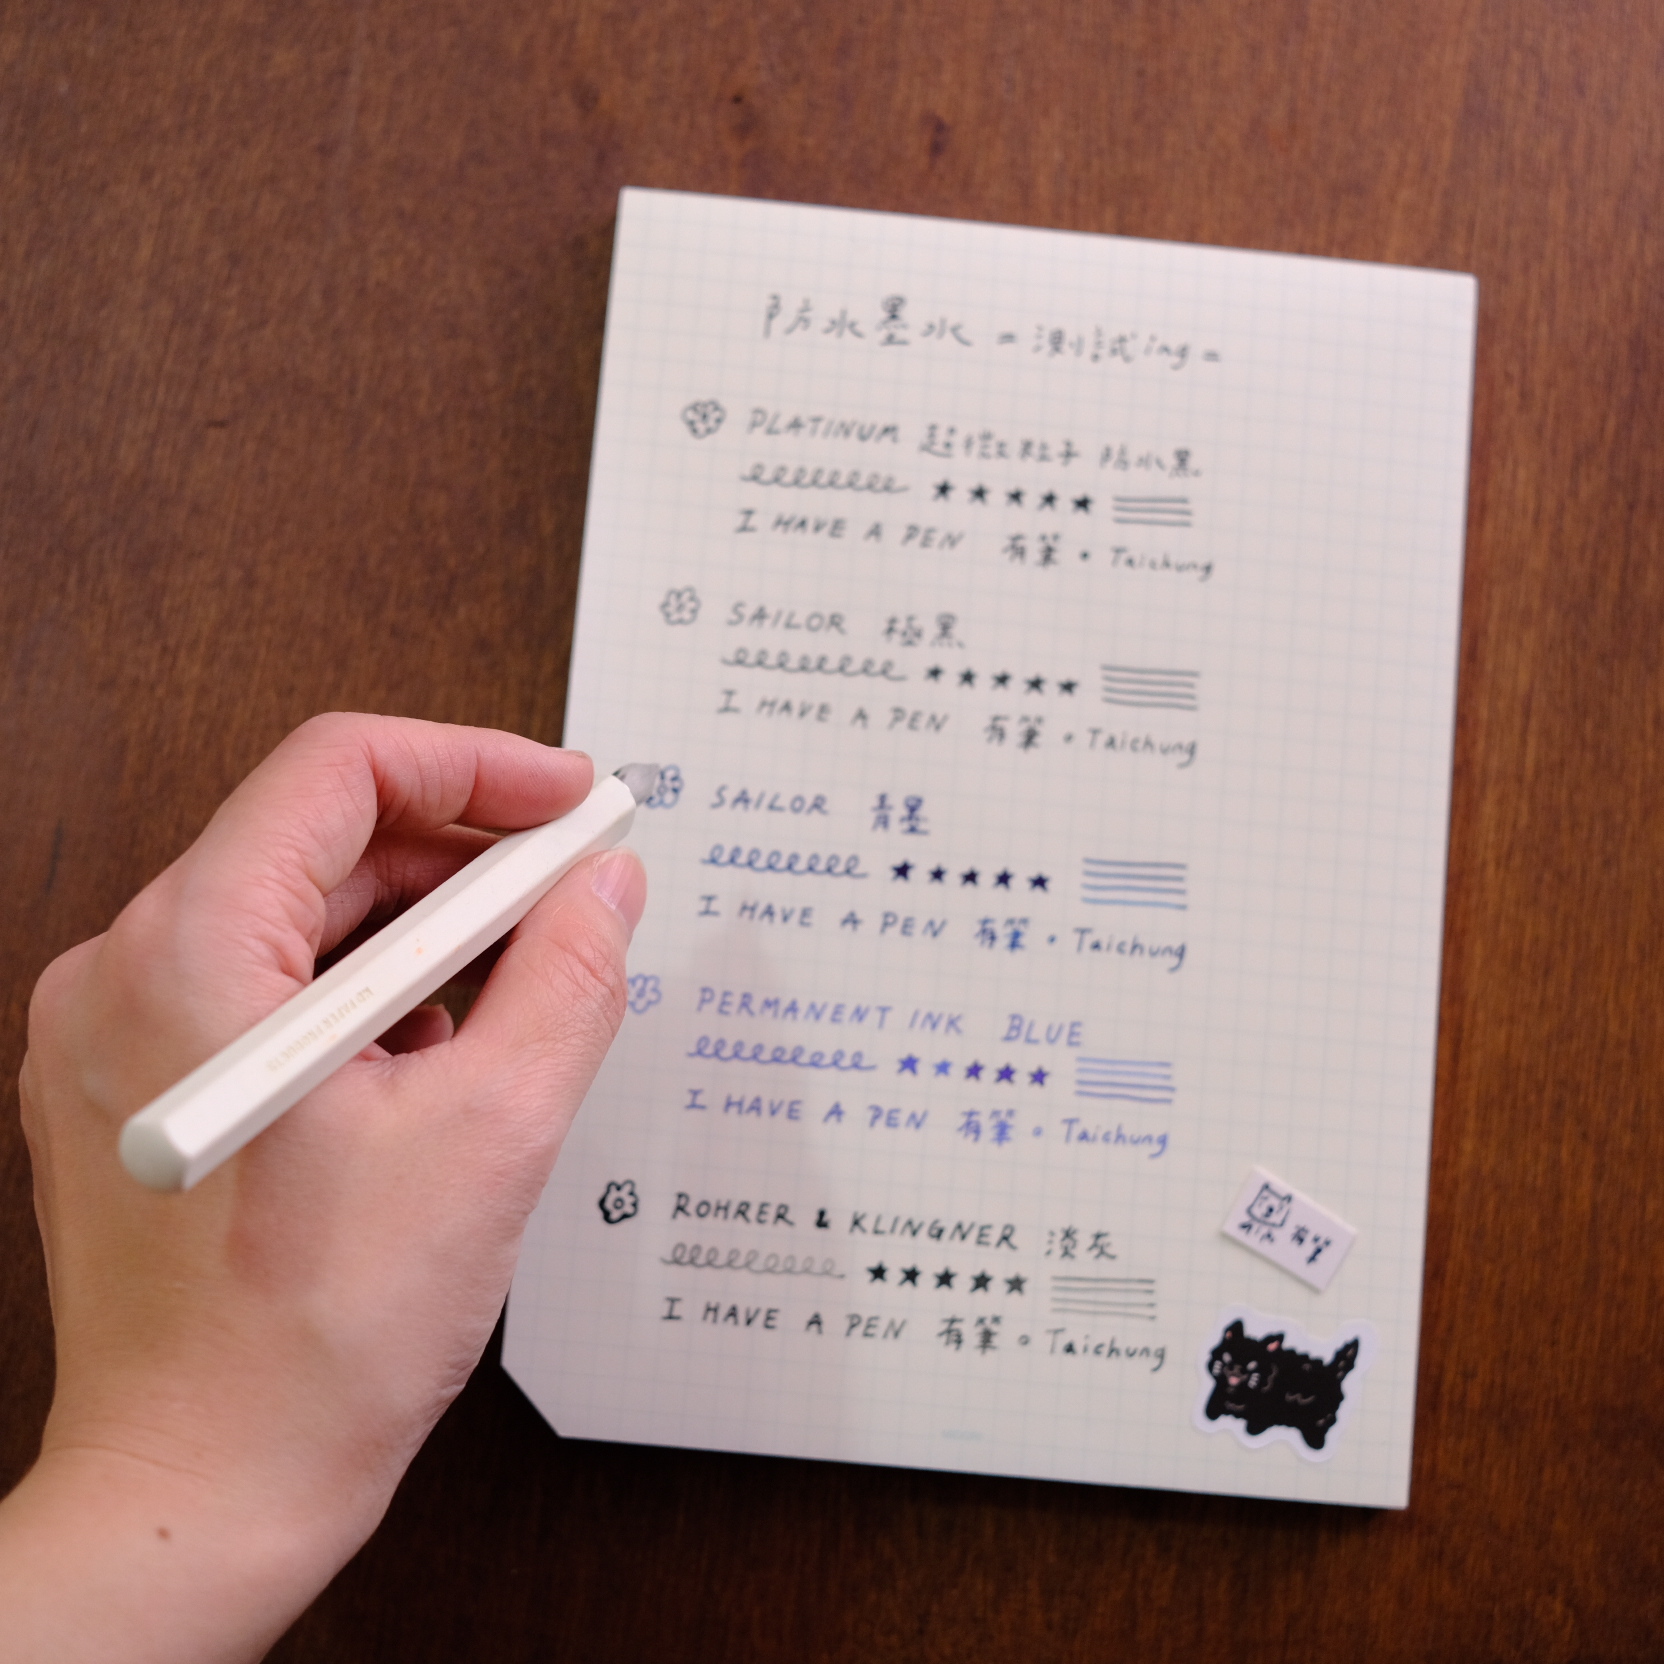 防水墨水 = 測試ing =
PLATINUM 超微粒子 防水黑
I HAVE A PEN 有筆。Taichung
SAILOR 極黑
I HAVE A PEN 有筆。Taichung
SAILOR 青墨
I HAVE A PEN 有筆。Taichung
PERMANENT INK BLUE
I HAVE A PEN 有筆。Taichung
ROHRER & KLINGNER 淡灰
I HAVE A PEN 有筆。Taichung
有筆